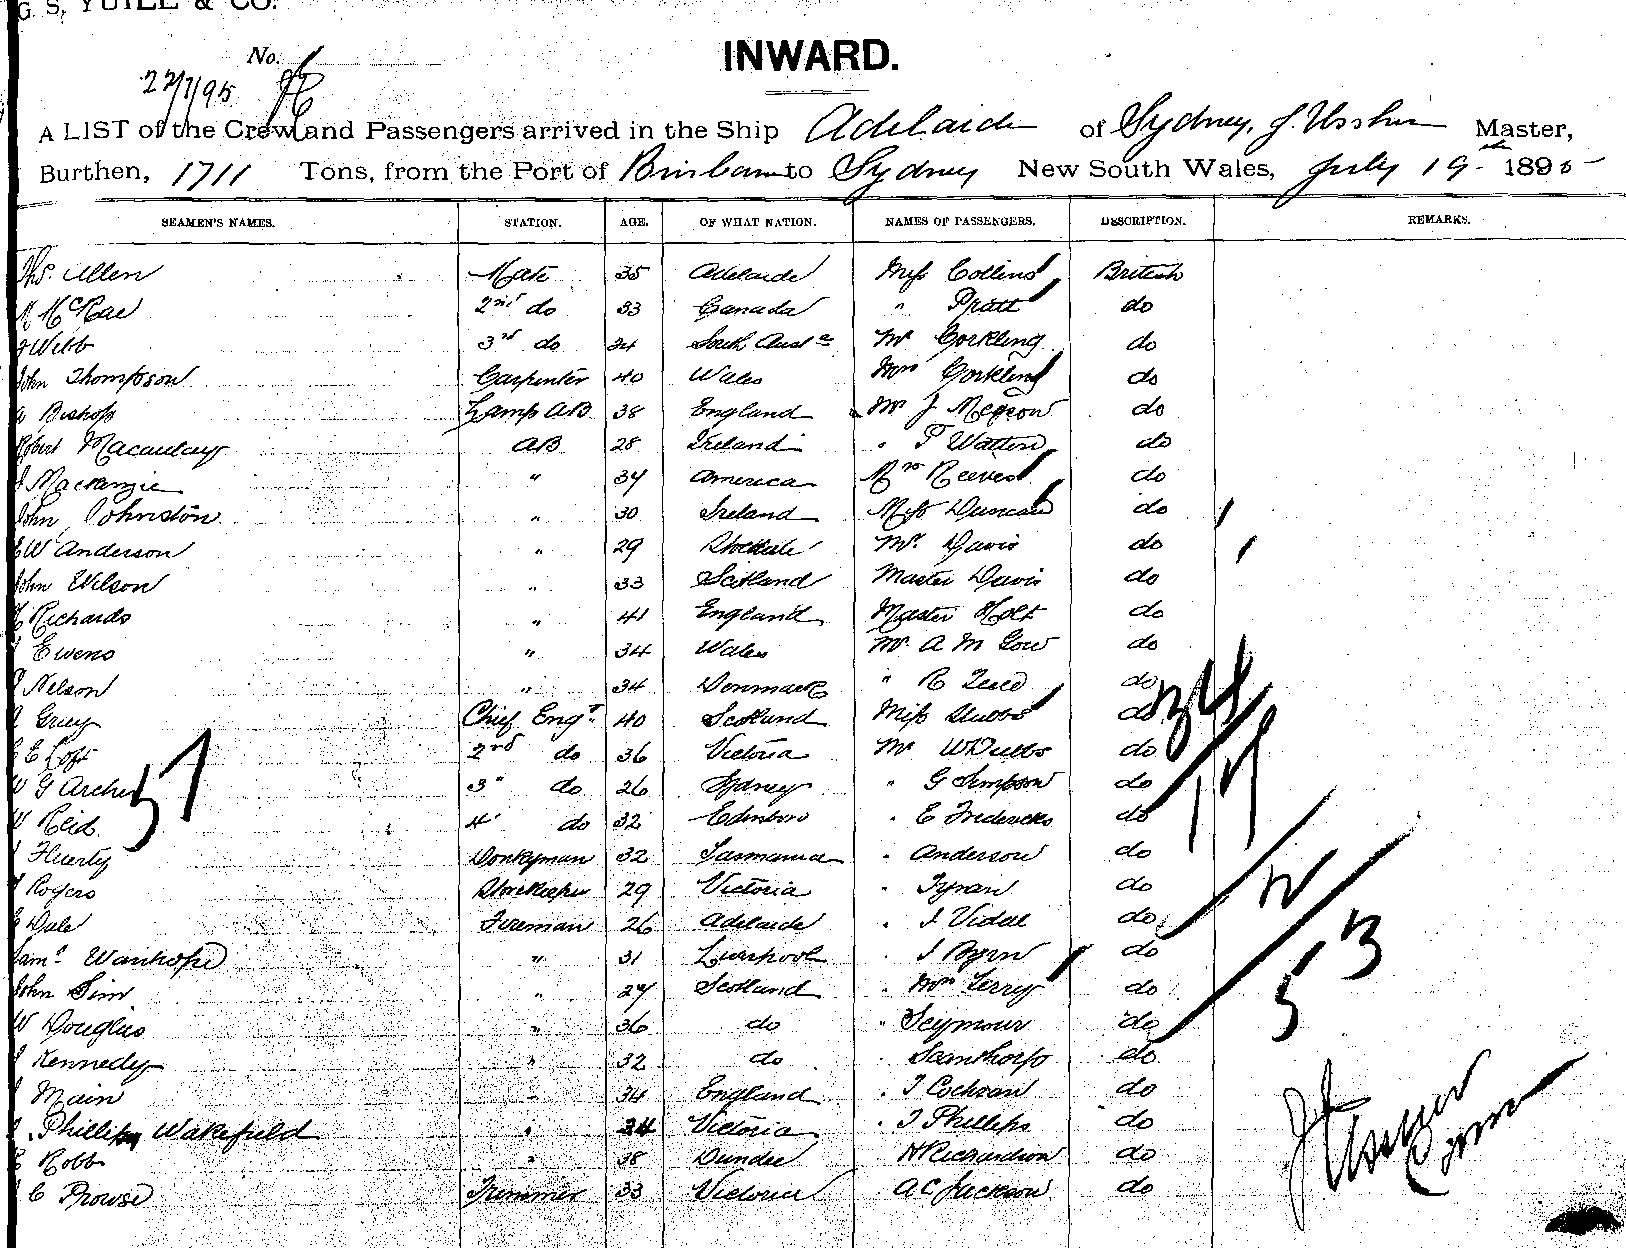 G. S. YUILL & CO.
No. 1
22/7/95
INWARD.
A LIST of the Crew and Passengers arrived in the Ship Adelaide of Sydney, J. Ussher Master,
Burthen, 1711 Tons, from the Port of Brisbane to Sydney New South Wales, July 19th 1895
SEAMEN'S NAMES. STATION. AGE. OF WHAT NATION. NAMES OF PASSENGERS. DESCRIPTION. REMARKS.
Ths. Allen Mate 35 Adelaide Miss Collins British
McRae 2nd do 33 Canada " Pratt do
Webb 3rd do 34 South Austa Mr Gorkling do
John Thompson Carpenter 40 Wales Mrs Gorkling do
A Bishop Lamp AB 38 England Mr J do
Robert Macaulay AB 28 Ireland " T Watten do
J Mackanzie " 34 America Mrs Reeves do
John Johnston " 30 Ireland Miss Duncan do
W Anderson " 29 Mr. Davis do
John Wilson " 33 Scotland Master Davis do
Richards " 41 England Master Holt do
Ewens " 34 Wales Mr. A M Gow do
Nelson " 34 Denmark " R do
Gray Chief Engr. 40 Scotland Miss Stubbs do
E 2nd do 36 Victoria Mr do
W G Archer 3" do 26 Sydney " G Simpson do
Reid 4" do 32 Edinboro " E Fredericks do
Donkeyman 32 Tasmania " Anderson do
Rogers Storekeeper 29 Victoria " do
Dale Fireman 26 Adelaide " J Vidal do
Saml. Wanhope " 31 Liverpool " J Byrn do
John Sim " 27 Scotland " Mrs Terry do
W Douglas " 36 do " Seymour do
Kennedy " 32 do " do
Main " 34 England " T Cochran do
Wakefield " 24 Victoria " J Phillips do
Robb " 38 Dundee H Richardson do
C Prowse Trimmer 33 Victoria A C Jackson do
34
19
53
J Ussher